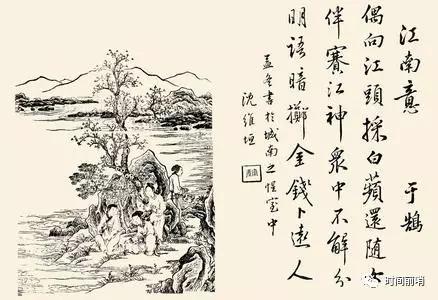 江南意 于鵠
偶向江頭採白蘋還隨女
伴賽江神眾中不解分
明語暗擲金錢卜遠人
孟冬書於城南之惺室中
沈維垣
时间前哨